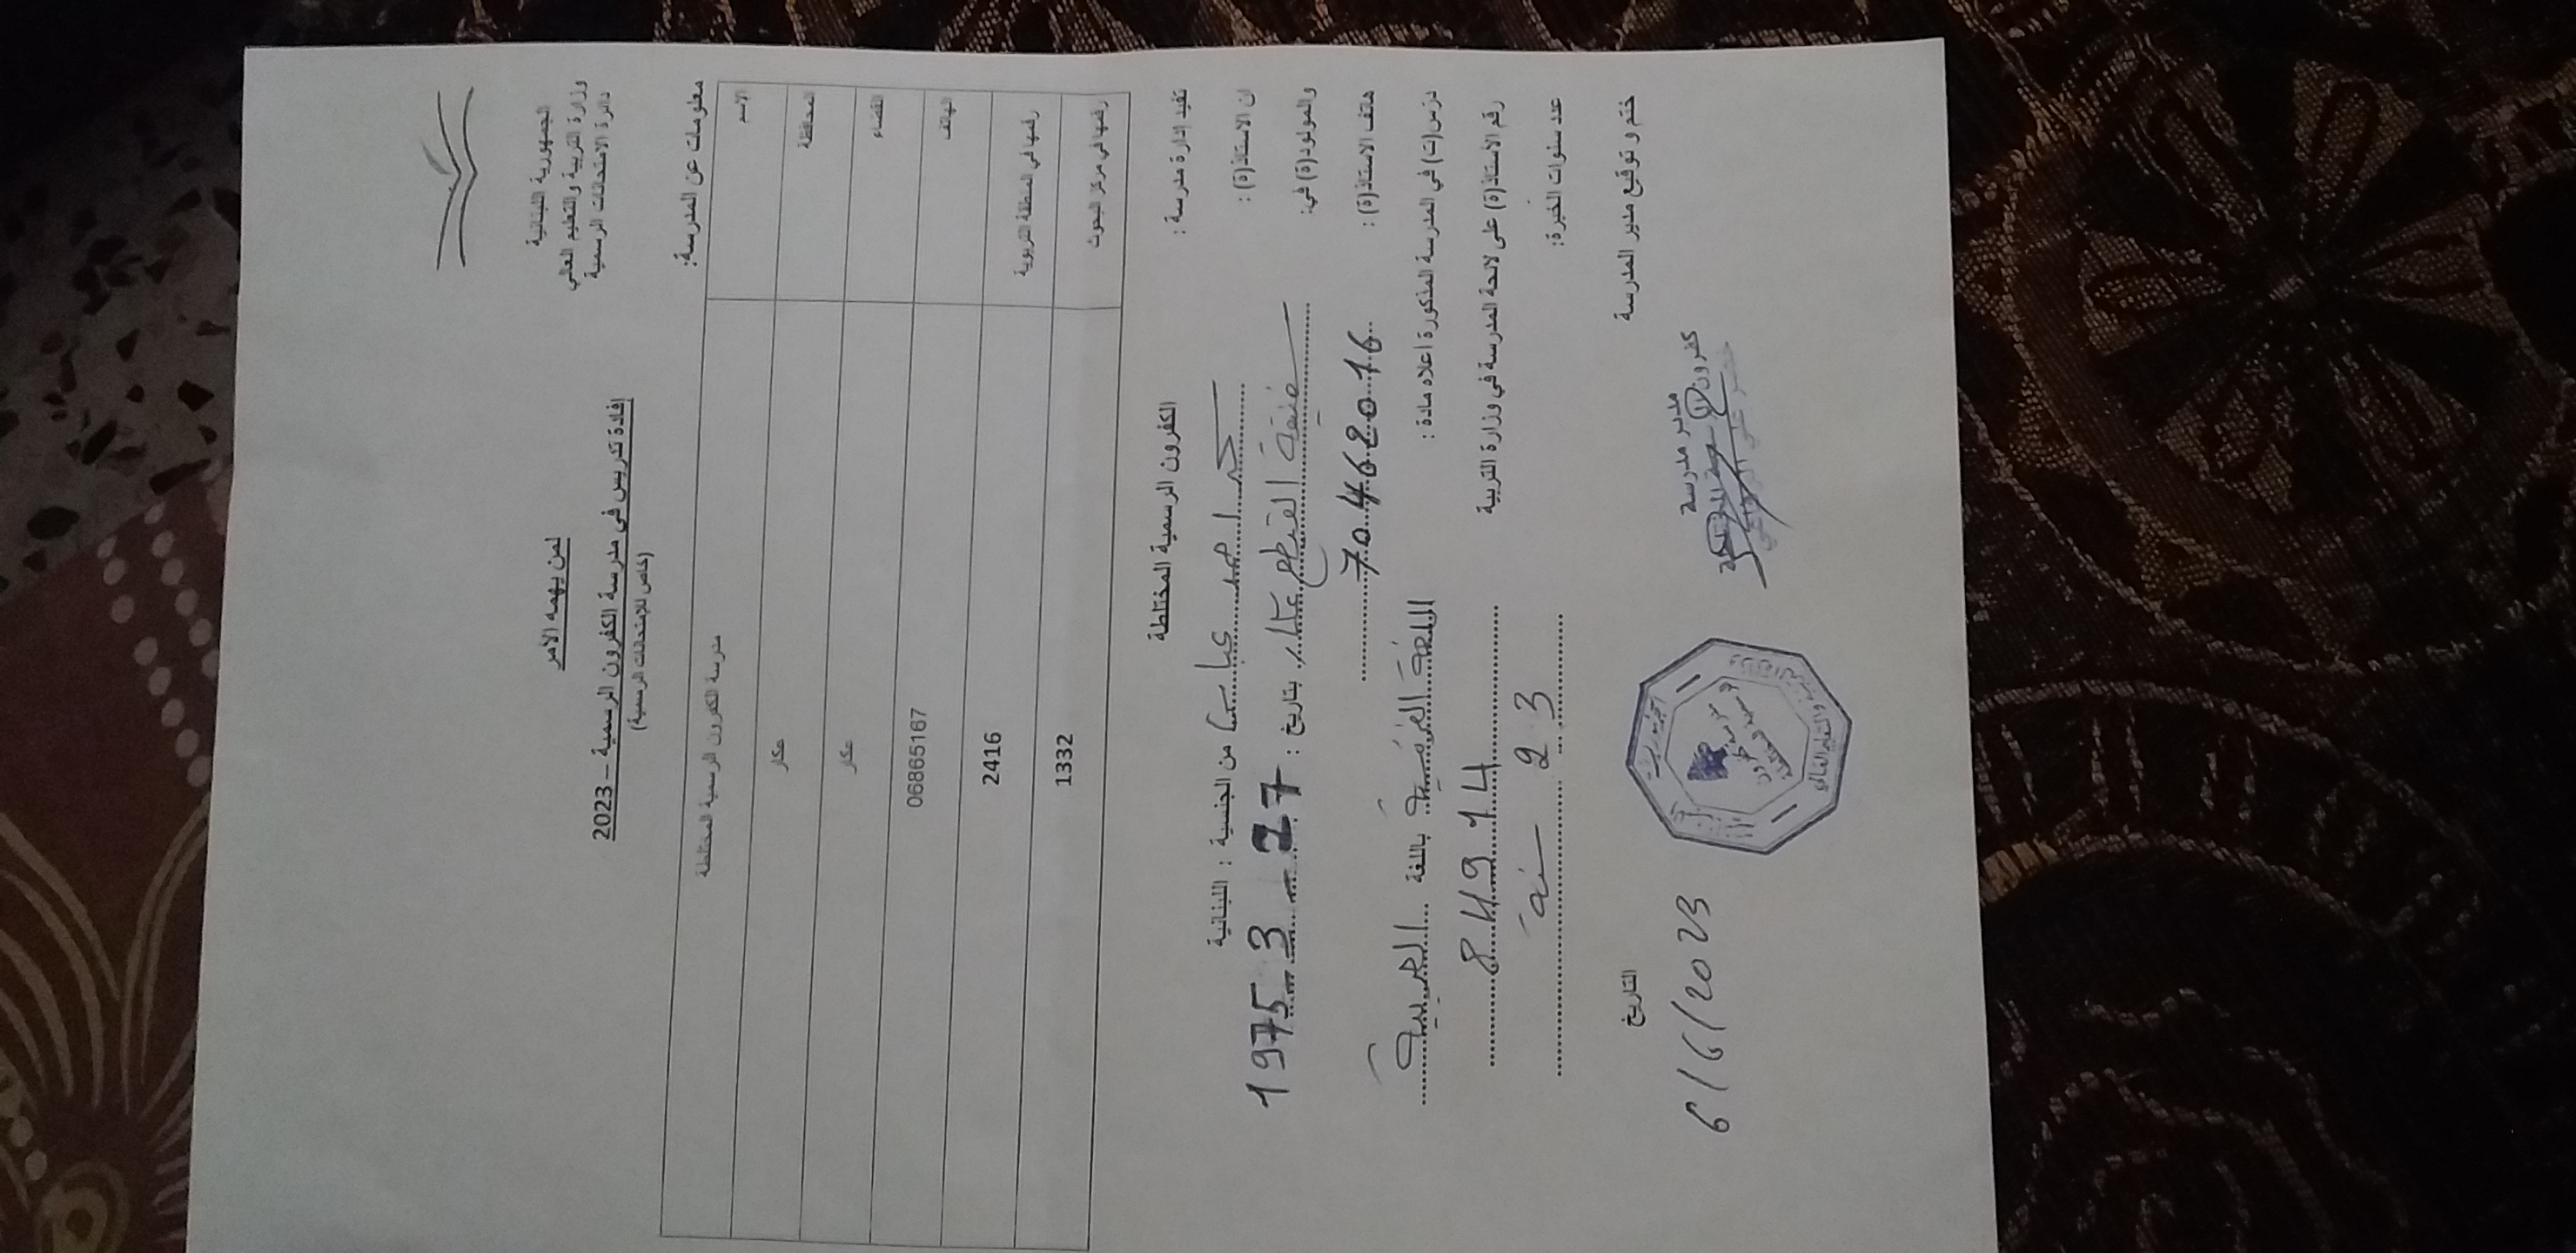 الجمهورية اللبنانية
وزارة التربية والتعليم العالي
دائرة الامتحانات الرسمية
لمن يهمه الأمر
إفادة تدريس في مدرسة الكفرون الرسمية – 2023
(خاص للإمتحانات الرسمية)
معلومات عن المدرسة:
الاسم مدرسة الكفرون الرسمية المختلطة
المحافظة عكار
القضاء عكار
الهاتف 06865167
رقمها في المنطقة التربوية 2416
رقمها في مركز البحوث 1332
تفيد إدارة مدرسة : الكفرون الرسمية المختلطة
ان الاستاذ(ة) : احمد عباس من الجنسية : اللبنانية
والمولود(ة) في: القيطع عكار بتاريخ : 27 - 3 - 1975
هاتف الاستاذ(ة) : 70462016
درّس(ت) في المدرسة المذكورة اعلاه مادة : اللغة العربية باللغة العربية
رقم الأستاذ(ة) على لائحة المدرسة في وزارة التربية 84914
عدد سنوات الخبرة: 23 سنة
ختم و توقيع مدير المدرسة التاريخ
مدير مدرسة
كفرون
6/6/2023